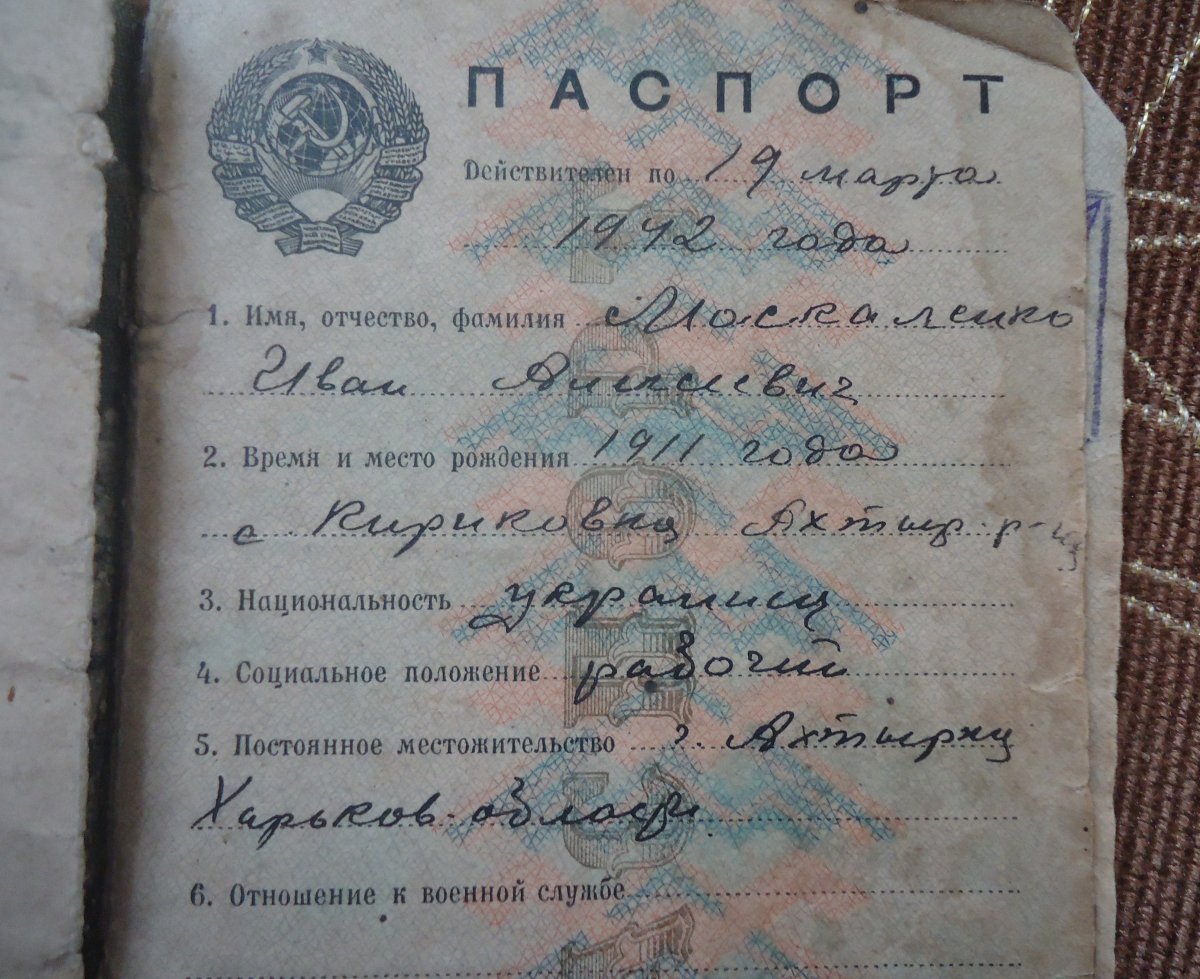 ПАСПОРТ
Действителен по 19 марта
1942 года
1. Имя, отчество, фамилия Москаленко
Иван Алексеевич
2. Время и место рождения 1911 года
с Кириковка Ахтыр р-на
3. Национальность украинец
4. Социальное положение рабочий
5. Постоянное местожительство г. Ахтырка
Харьков. области
6. Отношение к военной службе